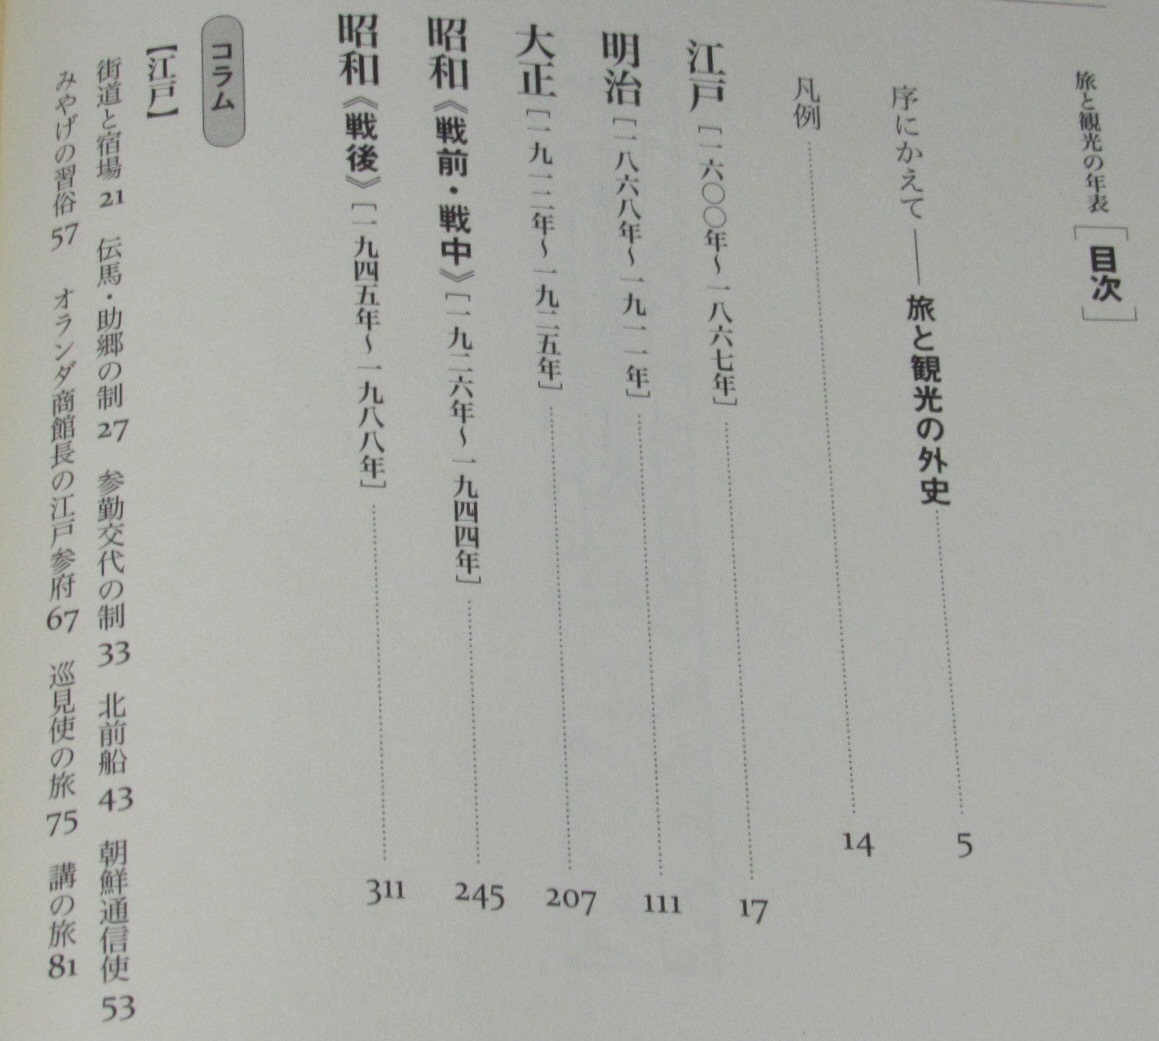 旅と観光の年表［目次］
序にかえて――旅と観光の外史 5
凡例 14
江戸［一六〇〇年〜一八六七年］ 17
明治［一八六八年〜一九一一年］ 111
大正［一九一二年〜一九二五年］ 207
昭和《戦前・戦中》［一九二六年〜一九四四年］ 245
昭和《戦後》［一九四五年〜一九八八年］ 311
コラム
【江戸】
街道と宿場 21 伝馬・助郷の制 27 参勤交代の制 33 北前船 43 朝鮮通信使 53
みやげの習俗 57 オランダ商館長の江戸参府 67 巡見使の旅 75 講の旅 81